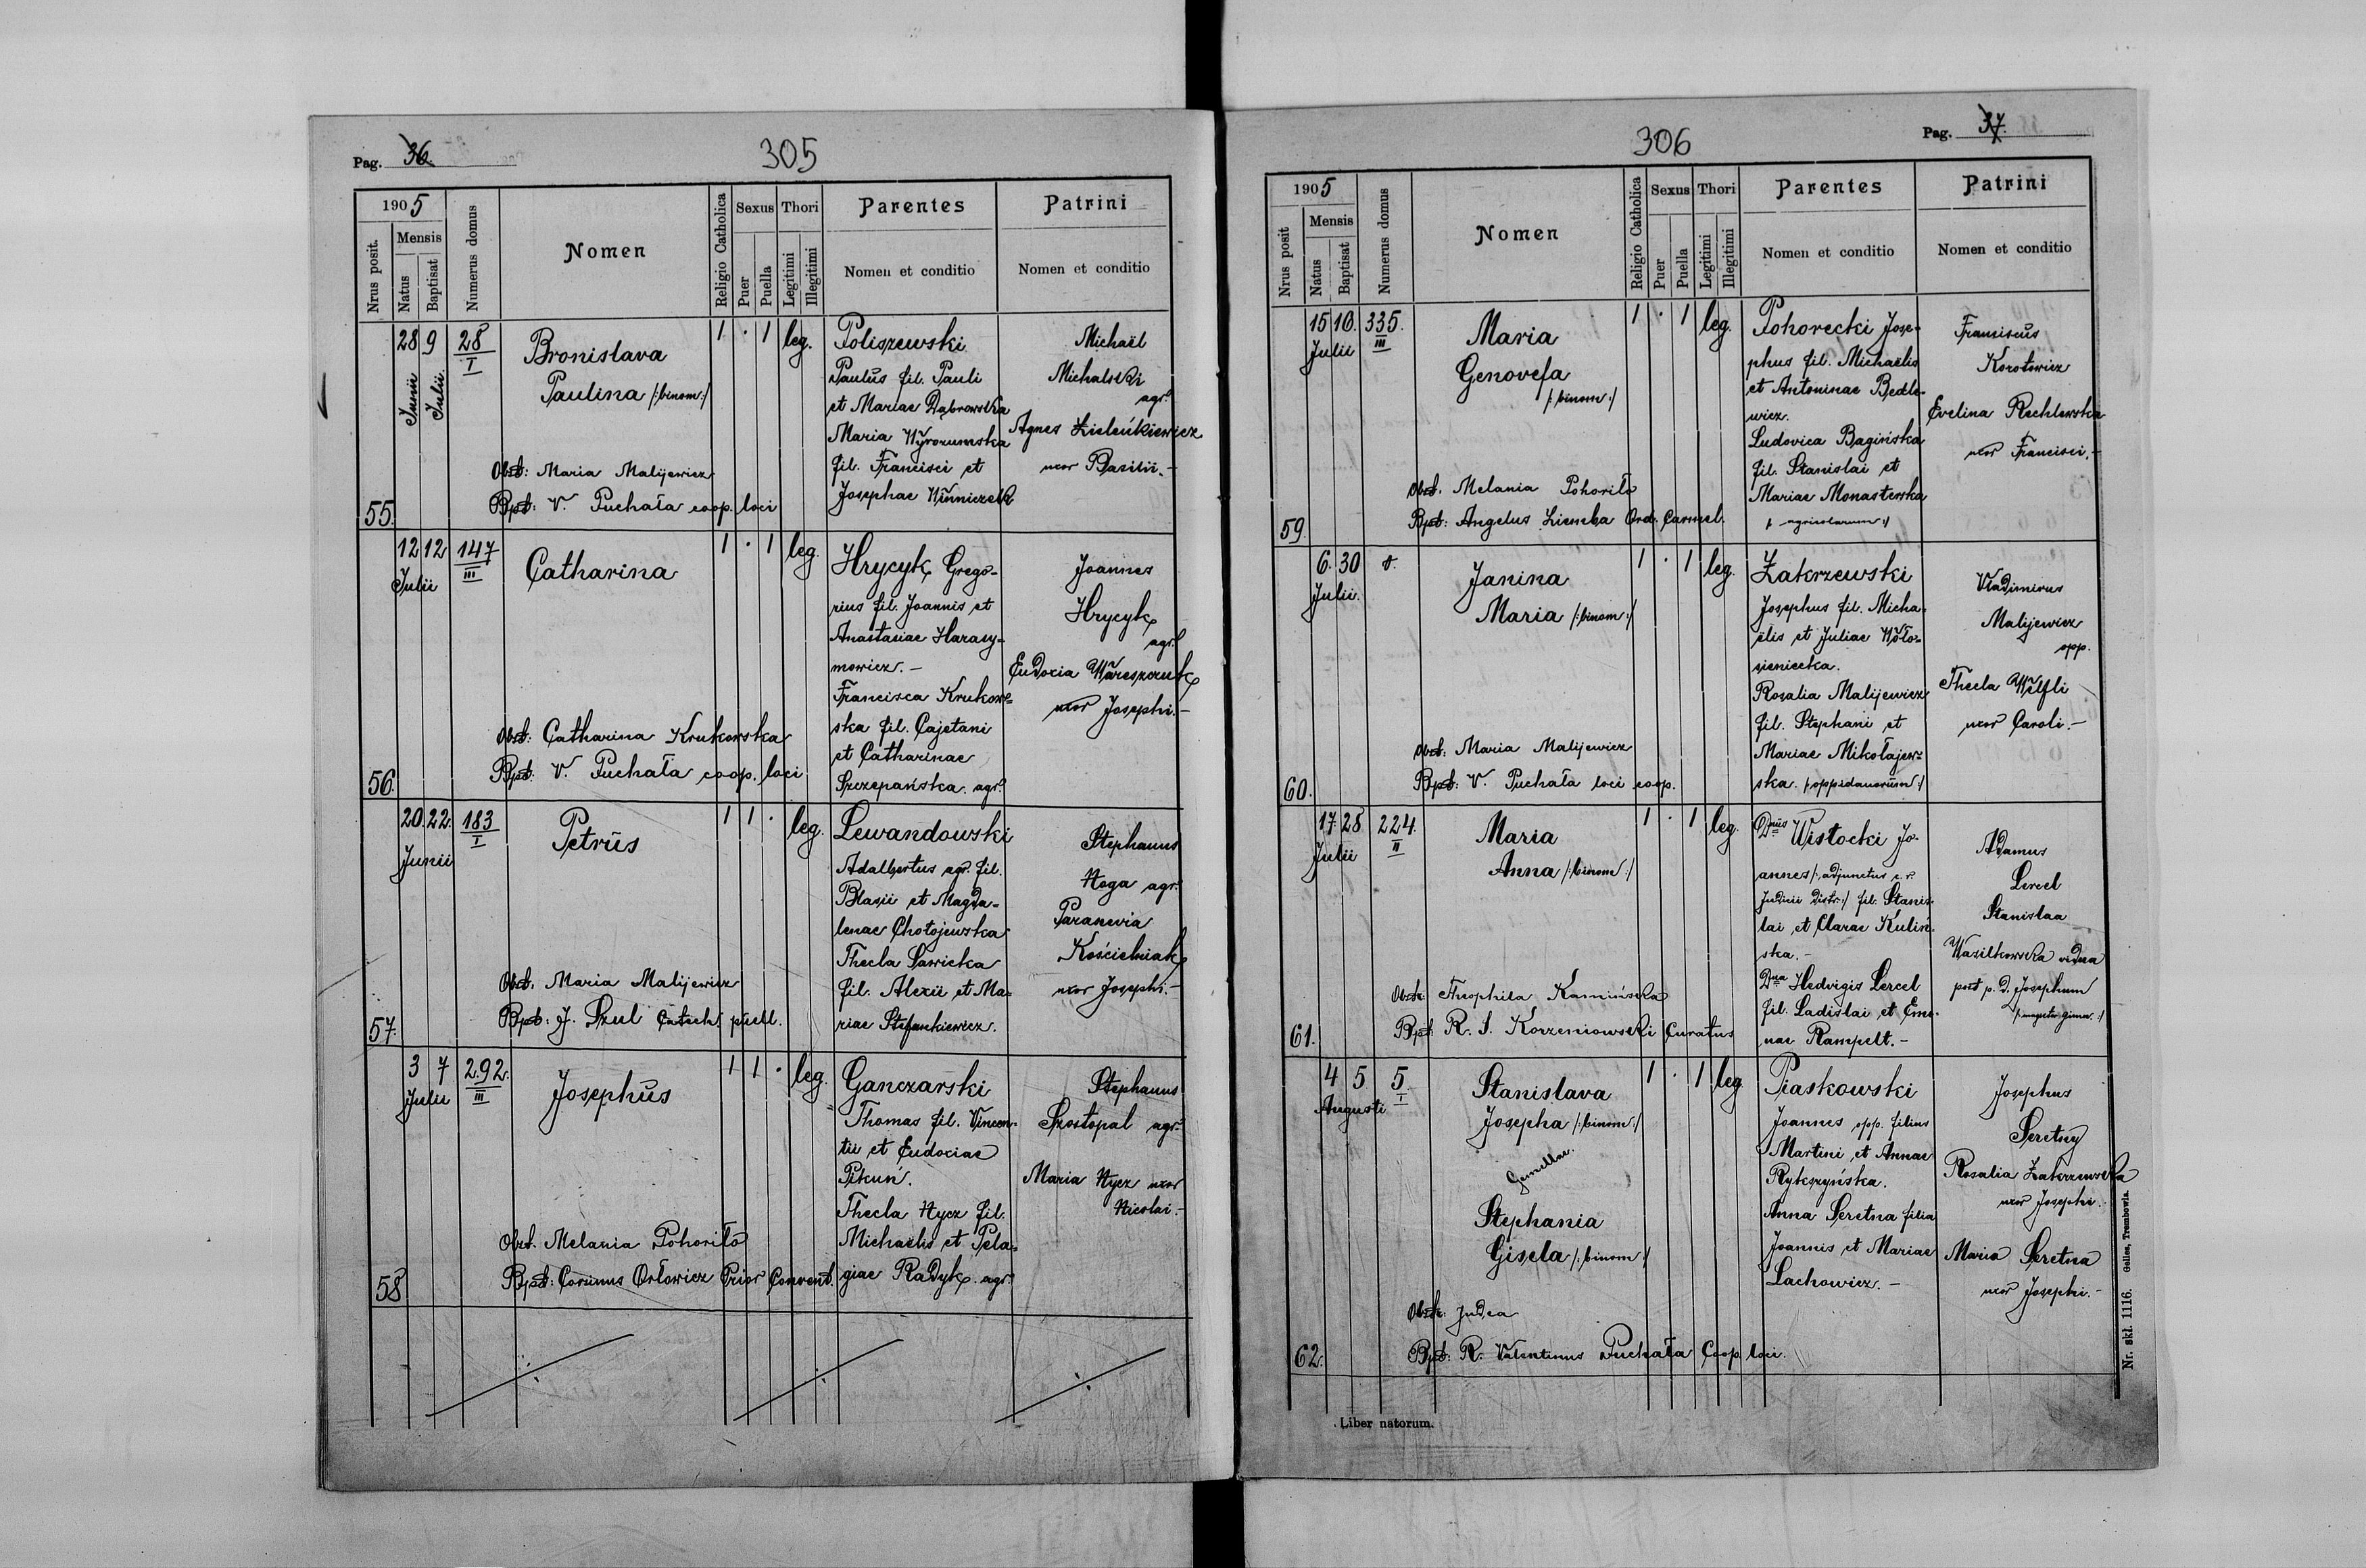 Pag. 36.
305
1905
Nrus posit.
Mensis
Natus
Baptisat
Numerus domus
Nomen
Religio Catholica
Sexus
Puer
Puella
Thori
Legitimi
Illegitimi
Parentes
Nomen et conditio
Patrini
Nomen et conditio
55.
28 9
Junii Julii
28
I
Bronislava
Paulina /:binom:/
Obst: Maria Malijewicz
Bpt: V. Puchała coop. loci
1 · 1 leg.
Poliszewski
Paulus fil. Pauli
et Mariae Dąbrowska
Maria Wyrozumska
fil. Francisci et
Josephae Winniczek
Michaël
Michalski
agr.
Agnes Zieleńkiewicz
uxor Basilii.-
56.
12 12
Julii
147
III
Catharina
Obst: Catharina Krukowska
Bpt: V. Puchała coop. loci
1 · 1 leg.
Hrycyk Grego-
rius fil. Joannis et
Anastasiae Harasy-
mowicz.-
Francisca Krukow-
ska fil. Cajetani
et Catharinae
Szczepańska. agr.
Joannes
Hrycyk
agr.
Eudoxia Wareszczuk
uxor Josephi.-
57.
20. 22.
Junii
183
I
Petrus
Obst. Maria Malijewicz
Bpt: J. Szul Catech. puell.
1 1 · leg.
Lewandowski
Adalbertus agr. fil.
Blasii et Magda-
lenae Chołojewska
Thecla Sawicka
fil. Alexii et Ma-
riae Stefankiewicz.
Stephanus
Noga agr.
Paranevia
Kościelniak
uxor Josephi.-
58
3 7
Julii
292.
III
Josephus
Obst. Melania Pohoriło
Bpt: Corsinus Orłowicz Prior Convent.
1 1 · leg.
Ganczarski
Thomas fil. Vincen-
tii et Eudociae
Pikuń.
Thecla Hycz fil.
Michaëlis et Pela-
giae Radyk. agr.
Stephanus
Szostopal agr.
Maria Hycz uxor
Nicolai.-
Pag. 37.
306
1905
Nrus posit
Mensis
Natus
Baptisat
Numerus domus
Nomen
Religio Catholica
Sexus
Puer
Puella
Thori
Legitimi
Illegitimi
Parentes
Nomen et conditio
Patrini
Nomen et conditio
59.
15 16.
Julii
335.
III
Maria
Genovefa
/:binom:/
Obst. Melania Pohoriło
Bpt: Angelus Ziemba Ord. Carmel.
1 · 1 leg.
Pohorecki Jose-
phus fil. Michaëlis
et Antoninae Bedle-
wicz.
Ludovica Bagińska
fil. Stanislai et
Mariae Monasterska
/: agricolarum:/
Franciscus
Korotowicz
Evelina Rechlewska
uxor Francisci.-
60.
6. 30
Julii.
Janina
Maria /:binom:/
Obst: Maria Malijewicz
Bpt: V. Puchała loci coop.
1 · 1 leg.
Zakrzewski
Josephus fil. Micha-
ëlis et Juliae Woło-
sieniecka.
Rosalia Malijewicz
fil. Stephani et
Mariae Mikołajew-
ska. /:oppidanorum:/
Vladimirus
Malijewicz
opp.
Thecla Wilfli
uxor Caroli.-
61.
17. 28
Julii
224.
II
Maria
Anna /:binom:/
Obst: Theophila Kamińska
Bpt. R. S. Korzeniowski Curatus
1 · 1 leg.
Dnus Wistocki Jo-
annes /:adjunctus c. r.
Judicii Distr:/ fil. Stanis-
lai et Clarae Kuliń-
ska.-
Dna Hedvigis Lercel
fil. Ladislai et Em-
nae Rampelt.-
Adamus
Lercel
Stanislaa
Wasilkowska vidua
post p. d. Josephum
62.
4 5
Augusti
5.
I
Stanislava
Josepha /:binom:/
Gemellae.
Stephania
Gisela /:binom:/
Obst: Judea
Bpt: R. Valentinus Puchała Coop. loci.
1 · 1 leg.
Piaskowski
Joannes opp. filius
Martini et Annae
Rykszyńska.
Anna Seretna filia
Joannis et Mariae
Lachowicz.-
Josephus
Seretny
Rosalia Zakrzewska
uxor Josephi.
Maria Seretna
uxor Josephi.-
Liber natorum.
Nr. skł. 1116. Gelles, Trembowla.